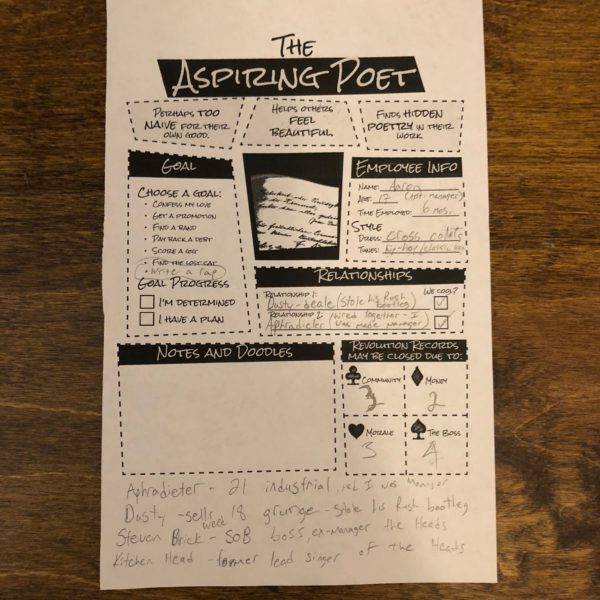 THE
ASPIRING POET
PERHAPS TOO
NAIVE FOR THEIR
OWN GOOD.
HELPS OTHERS
FEEL
BEAUTIFUL.
FINDS HIDDEN
POETRY IN THEIR
WORK
GOAL
CHOOSE A GOAL:
• CONFESS MY LOVE
• GET A PROMOTION
• FIND A BAND
• PAY BACK A DEBT
• SCORE A GIG
• FIND THE LOST CAT
• Write a rap
GOAL PROGRESS
I'M DETERMINED
I HAVE A PLAN
EMPLOYEE INFO
NAME: Aaron
AGE: 17 (Asst. manager)
TIME EMPLOYED: 6 mos.
STYLE
DRESS: cross colors
TUNES:
RELATIONSHIPS
RELATIONSHIP 1: WE COOL?
Dusty - (Stole his Rush bootleg)
RELATIONSHIP 2: hired together - I
Aphradieter (was made manager)
NOTES AND DOODLES
REVOLUTION RECORDS
MAY BE CLOSED DUE TO:
COMMUNITY
MONEY
2
MORALE
3
THE BOSS
4
Aphradieter - 21 industrial, I was manager
Dusty - sells weed 18 grunge - stole his Rush bootleg
Steven Brick - SOB boss, ex-manager the Heads
Kitchen Head - former lead singer of the Heads